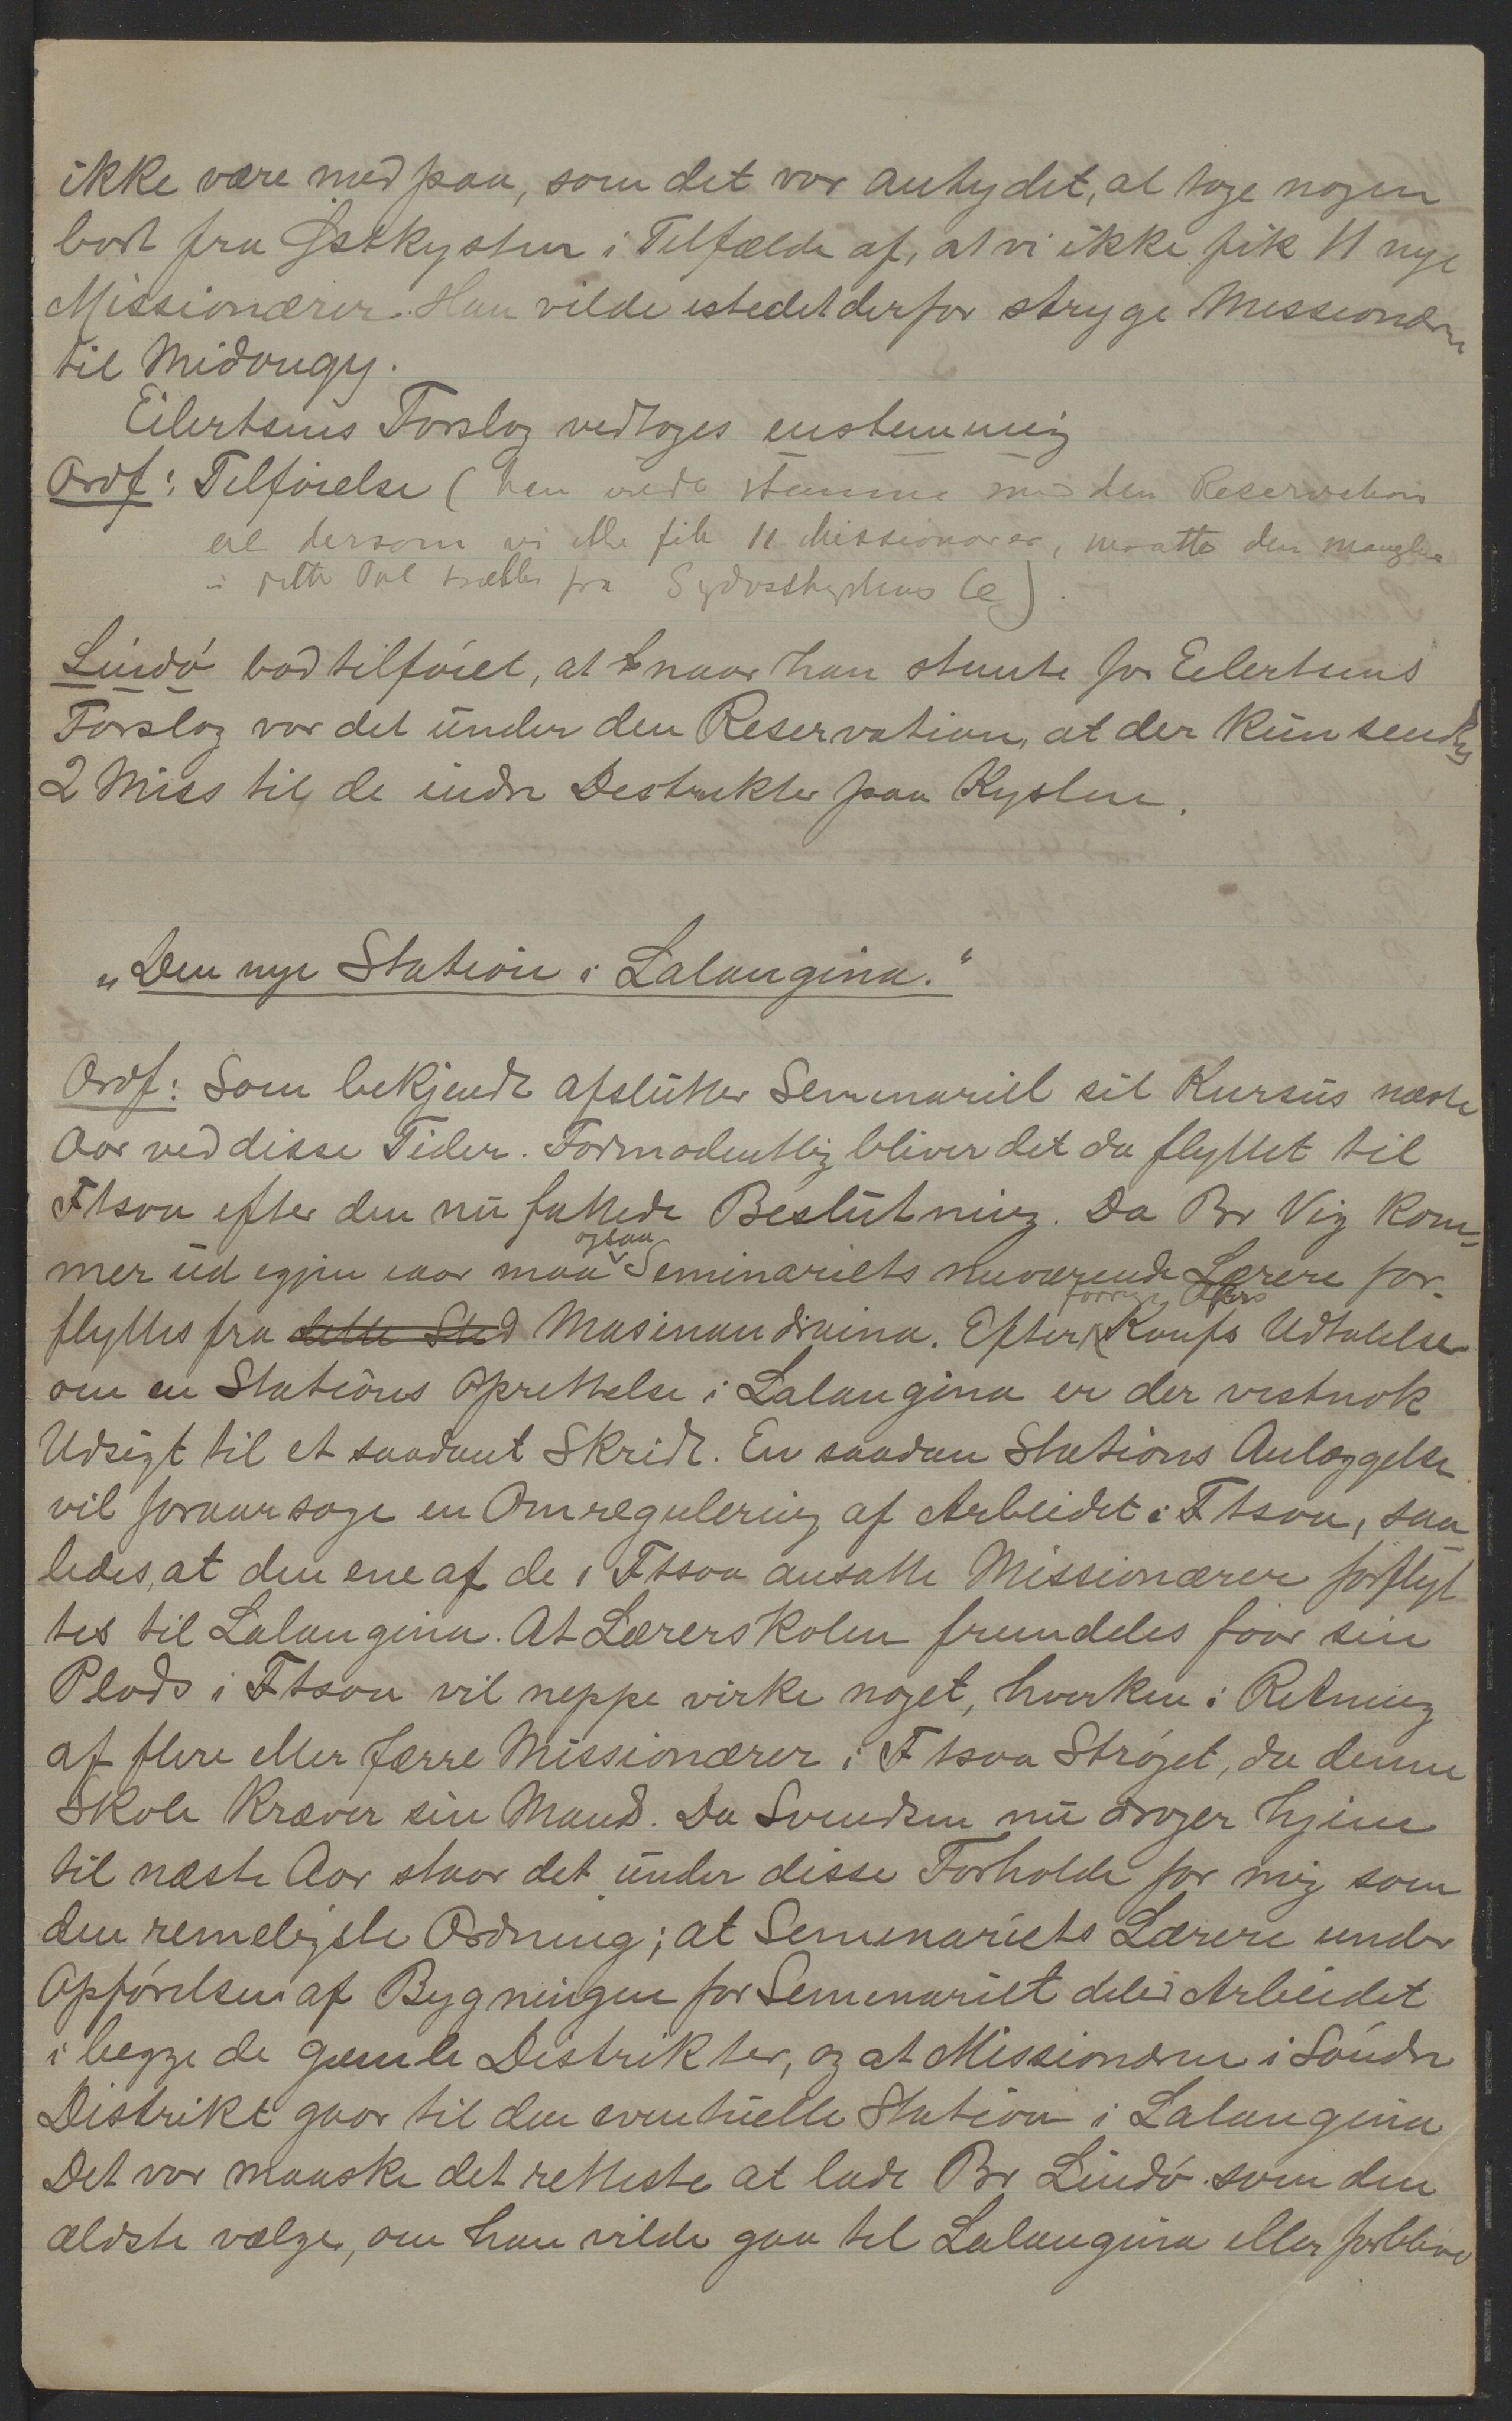 ikke være med paa, som det var antydet, at tage nogen
bort fra Østkysten i Tilfælde af, at vi ikke fik 11 nye
Missionærer. Han vilde istedetderfor stryge Missionæren
til Midongy.
Eilertsens Forslag vedtoges enstemmig
Ordf: Tilføielse (han vilde stemme med den Reservation
at dersom vi ikke fik 11 Missionærer, maatte den manglen
i dette Tal trækkes fra Sydostkystens
Lindø bad tilføiet, at naar han stemte for Eilertsens
Forslag var det under den Reservation, at der kun sendtes
2 Miss til de indre Destrikter paa Kysten.
"Den nye Station i Lalangina."
Ordf: Som bekjendt afslutter Seminariet sit Kursus næste
Aar ved disse Tider. Formodentlig bliver det da flyttet til
Ftsoa efter den nu fattede Beslutning. Da Br Vig kom=
mer ud igjen iaar maa ogsaa Seminariets nuværende Lærere for-
flyttes fra dette Sted Masinandraina. Efter forrige Aars Konfs Udtalelse
om en Stations Oprettelse i Lalangina er der vistnok
Udsigt til et saadant Skridt. En saadan Stations Anlæggelse
vil foraarsage en Omregulering af Arbeidet i Ftsoa, saa
ledes, at den ene af de i Ftsoa ansatte Missionærer forflyt
tes til Lalangina. At Lærerskolen fremdeles faar sin
Plads i Ftsoa vil neppe virke noget, hverken i Retning
af flere eller færre Missionærer i Ftsoa Strøget, da denne
Skole kræver sin Mand. Da Svendsen nu drager hjem
til næste Aar staar det under disse Forholde for mig som
den rimeligste Ordning; at Seminariets Lærere under
Opførelsen af Bygningen for Seminariet deler Arbeidet
i begge de gamle Distrikter, og at Missionæren i Søndre
Distrikt gaar til den eventuelle Station i Lalangina
Det var maaske det retteste at lade Br Lindø som den
ældste vælge, om han vilde gaa til Lalangina eller forblive